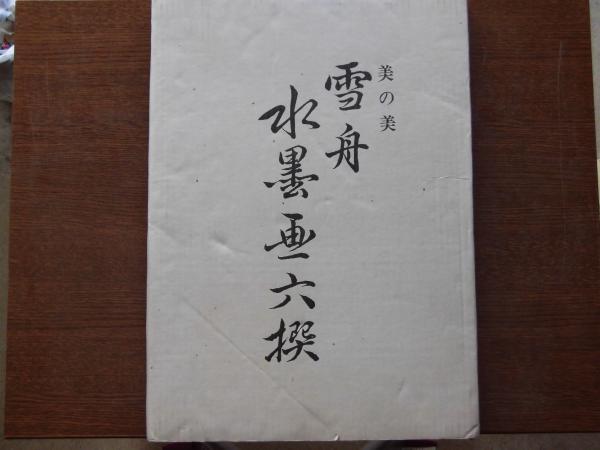 美の美
雪舟
水墨画六撰